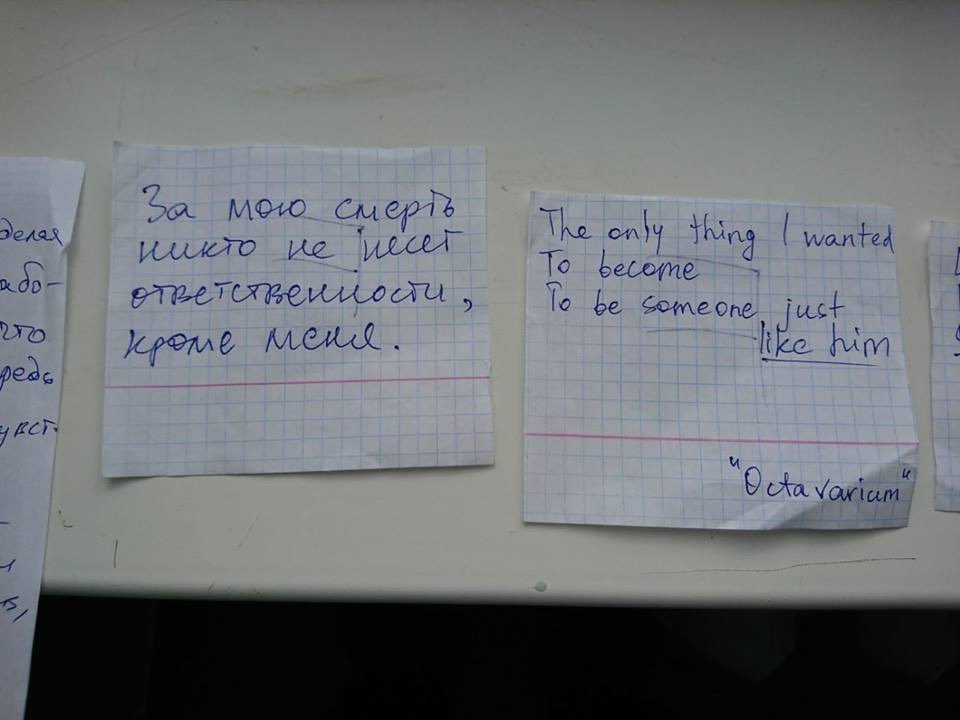 делая
або-
что
редь
увст-
За мою смерть
никто не несет
ответственности,
кроме меня.
The only thing I wanted
To become
To be someone just
like him
"Octavarium"